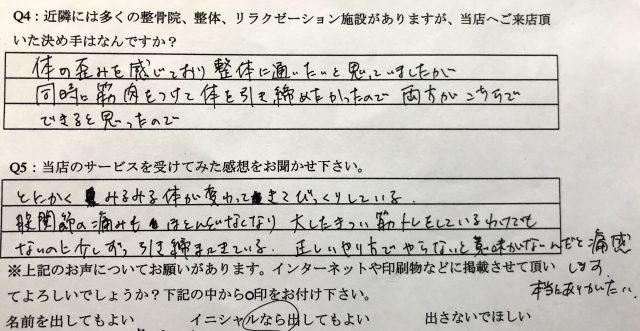 Q4：近隣には多くの整骨院、整体、リラクゼーション施設がありますが、当店へご来店頂
いた決め手はなんですか？
体の歪みを感じており整体に通いたいと思っていましたが
同時に筋肉をつけて体を引き締めたかったので 両方がこちらで
できると思ったので
Q5：当店のサービスを受けてみた感想をお聞かせ下さい。
とにかく みるみる体が変わってきてびっくりしている。
股関節の痛みも ほとんどなくなり 大したきつい筋トレをしているわけでも
ないのに少しずつ引き締まってきている。 正しいやり方でやらないと意味がないんだと痛感
します。
※上記のお声についてお願いがあります。インターネットや印刷物などに掲載させて頂い
てよろしいでしょうか？下記の中から○印をお付け下さい。
本当にありがたい。
名前を出してもよい イニシャルなら出してもよい 出さないでほしい